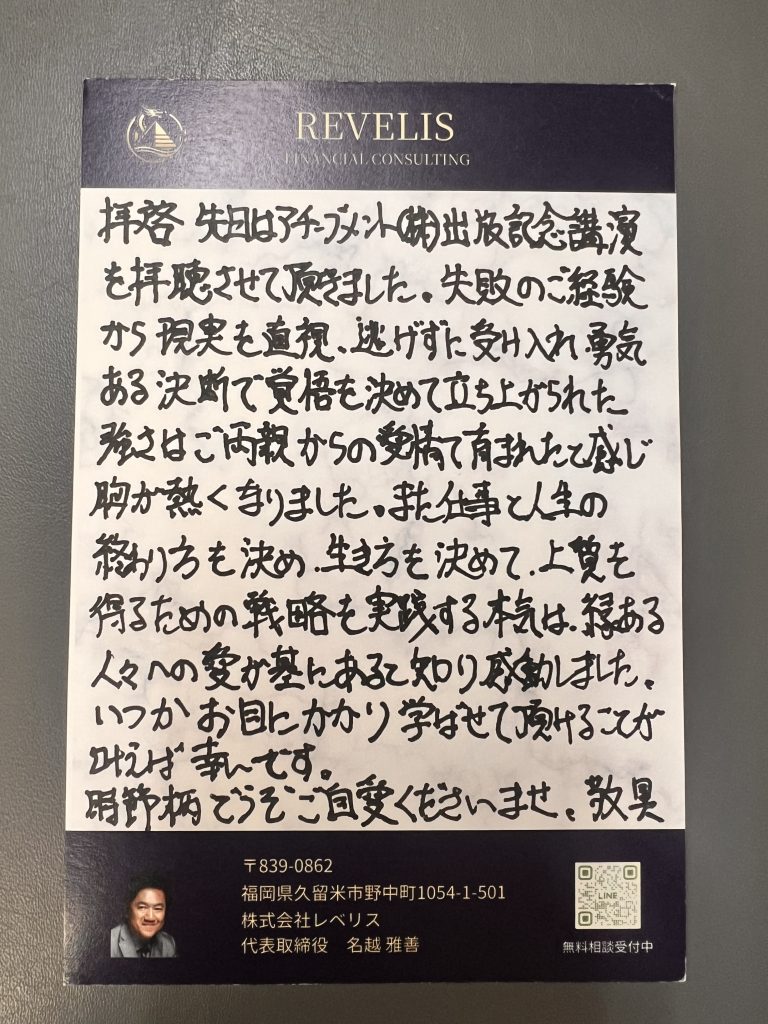 REVELIS
FINANCIAL CONSULTING
拝啓 先日はアチーブメント(株)出版記念講演
を拝聴させて頂きました。失敗のご経験
から現実を直視、逃げずに受け入れ勇気
ある決断で覚悟を決めて立ち上がられた
強さはご両親からの愛情で育まれたと感じ
胸が熱くなりました。また仕事と人生の
終わり方を決め、生き方を決めて、上質を
得るための戦略を実践する本気は、縁ある
人々への愛が基にあると知り感動しました。
いつかお目にかかり学ばせて頂けることが
叶えば幸いです。
時節柄どうぞご自愛くださいませ。敬具
〒839-0862
福岡県久留米市野中町1054-1-501
株式会社レベリス
代表取締役 名越 雅善
LINE
無料相談受付中